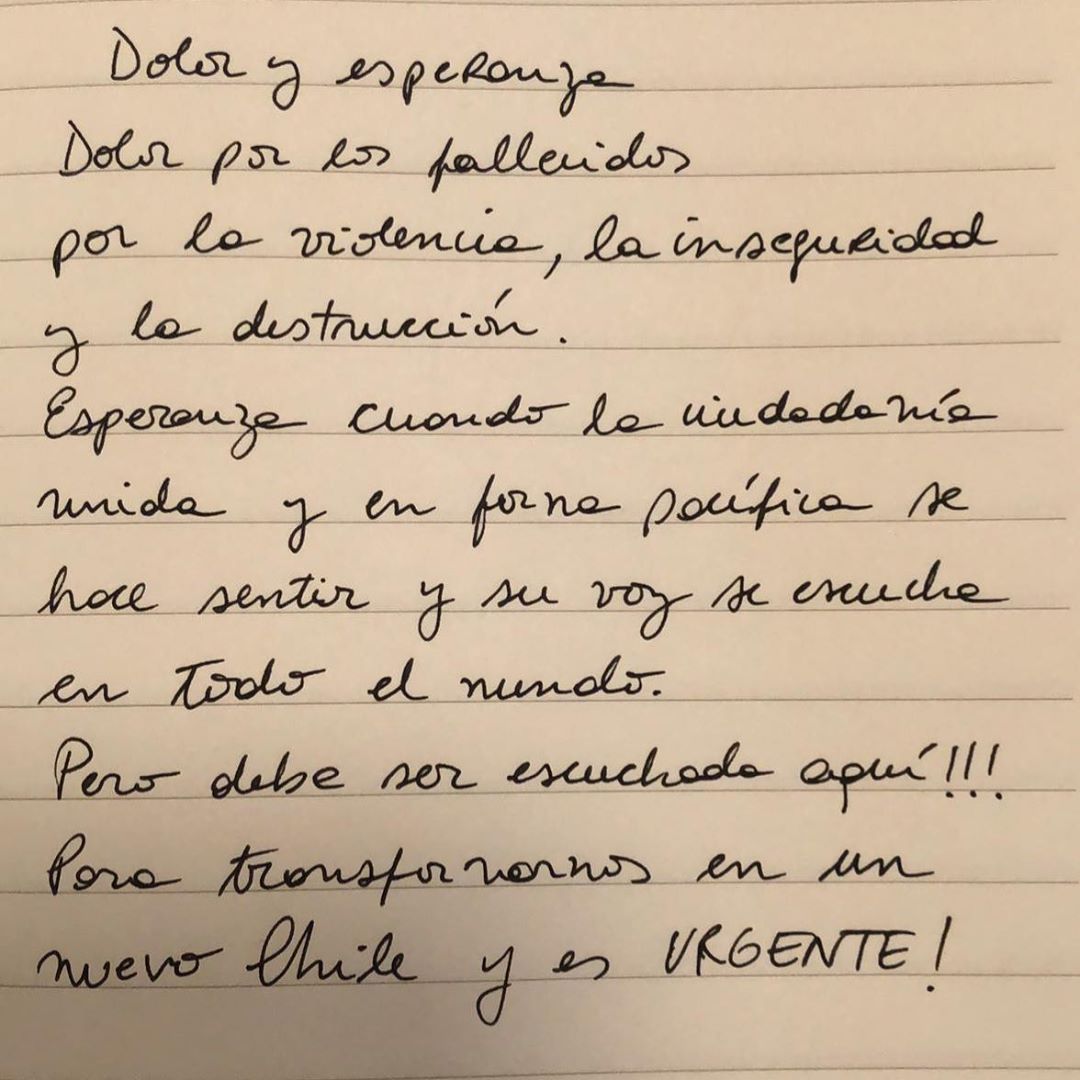 Dolor y esperanza
Dolor por los fallecidos
por la violencia, la inseguridad
y la destrucción.
Esperanza cuando la ciudadanía
unida y en forma pacífica se
hace sentir y su voz se escucha
en todo el mundo.
Pero debe ser escuchada aquí!!!
Para transformarnos en un
nuevo Chile y es URGENTE!